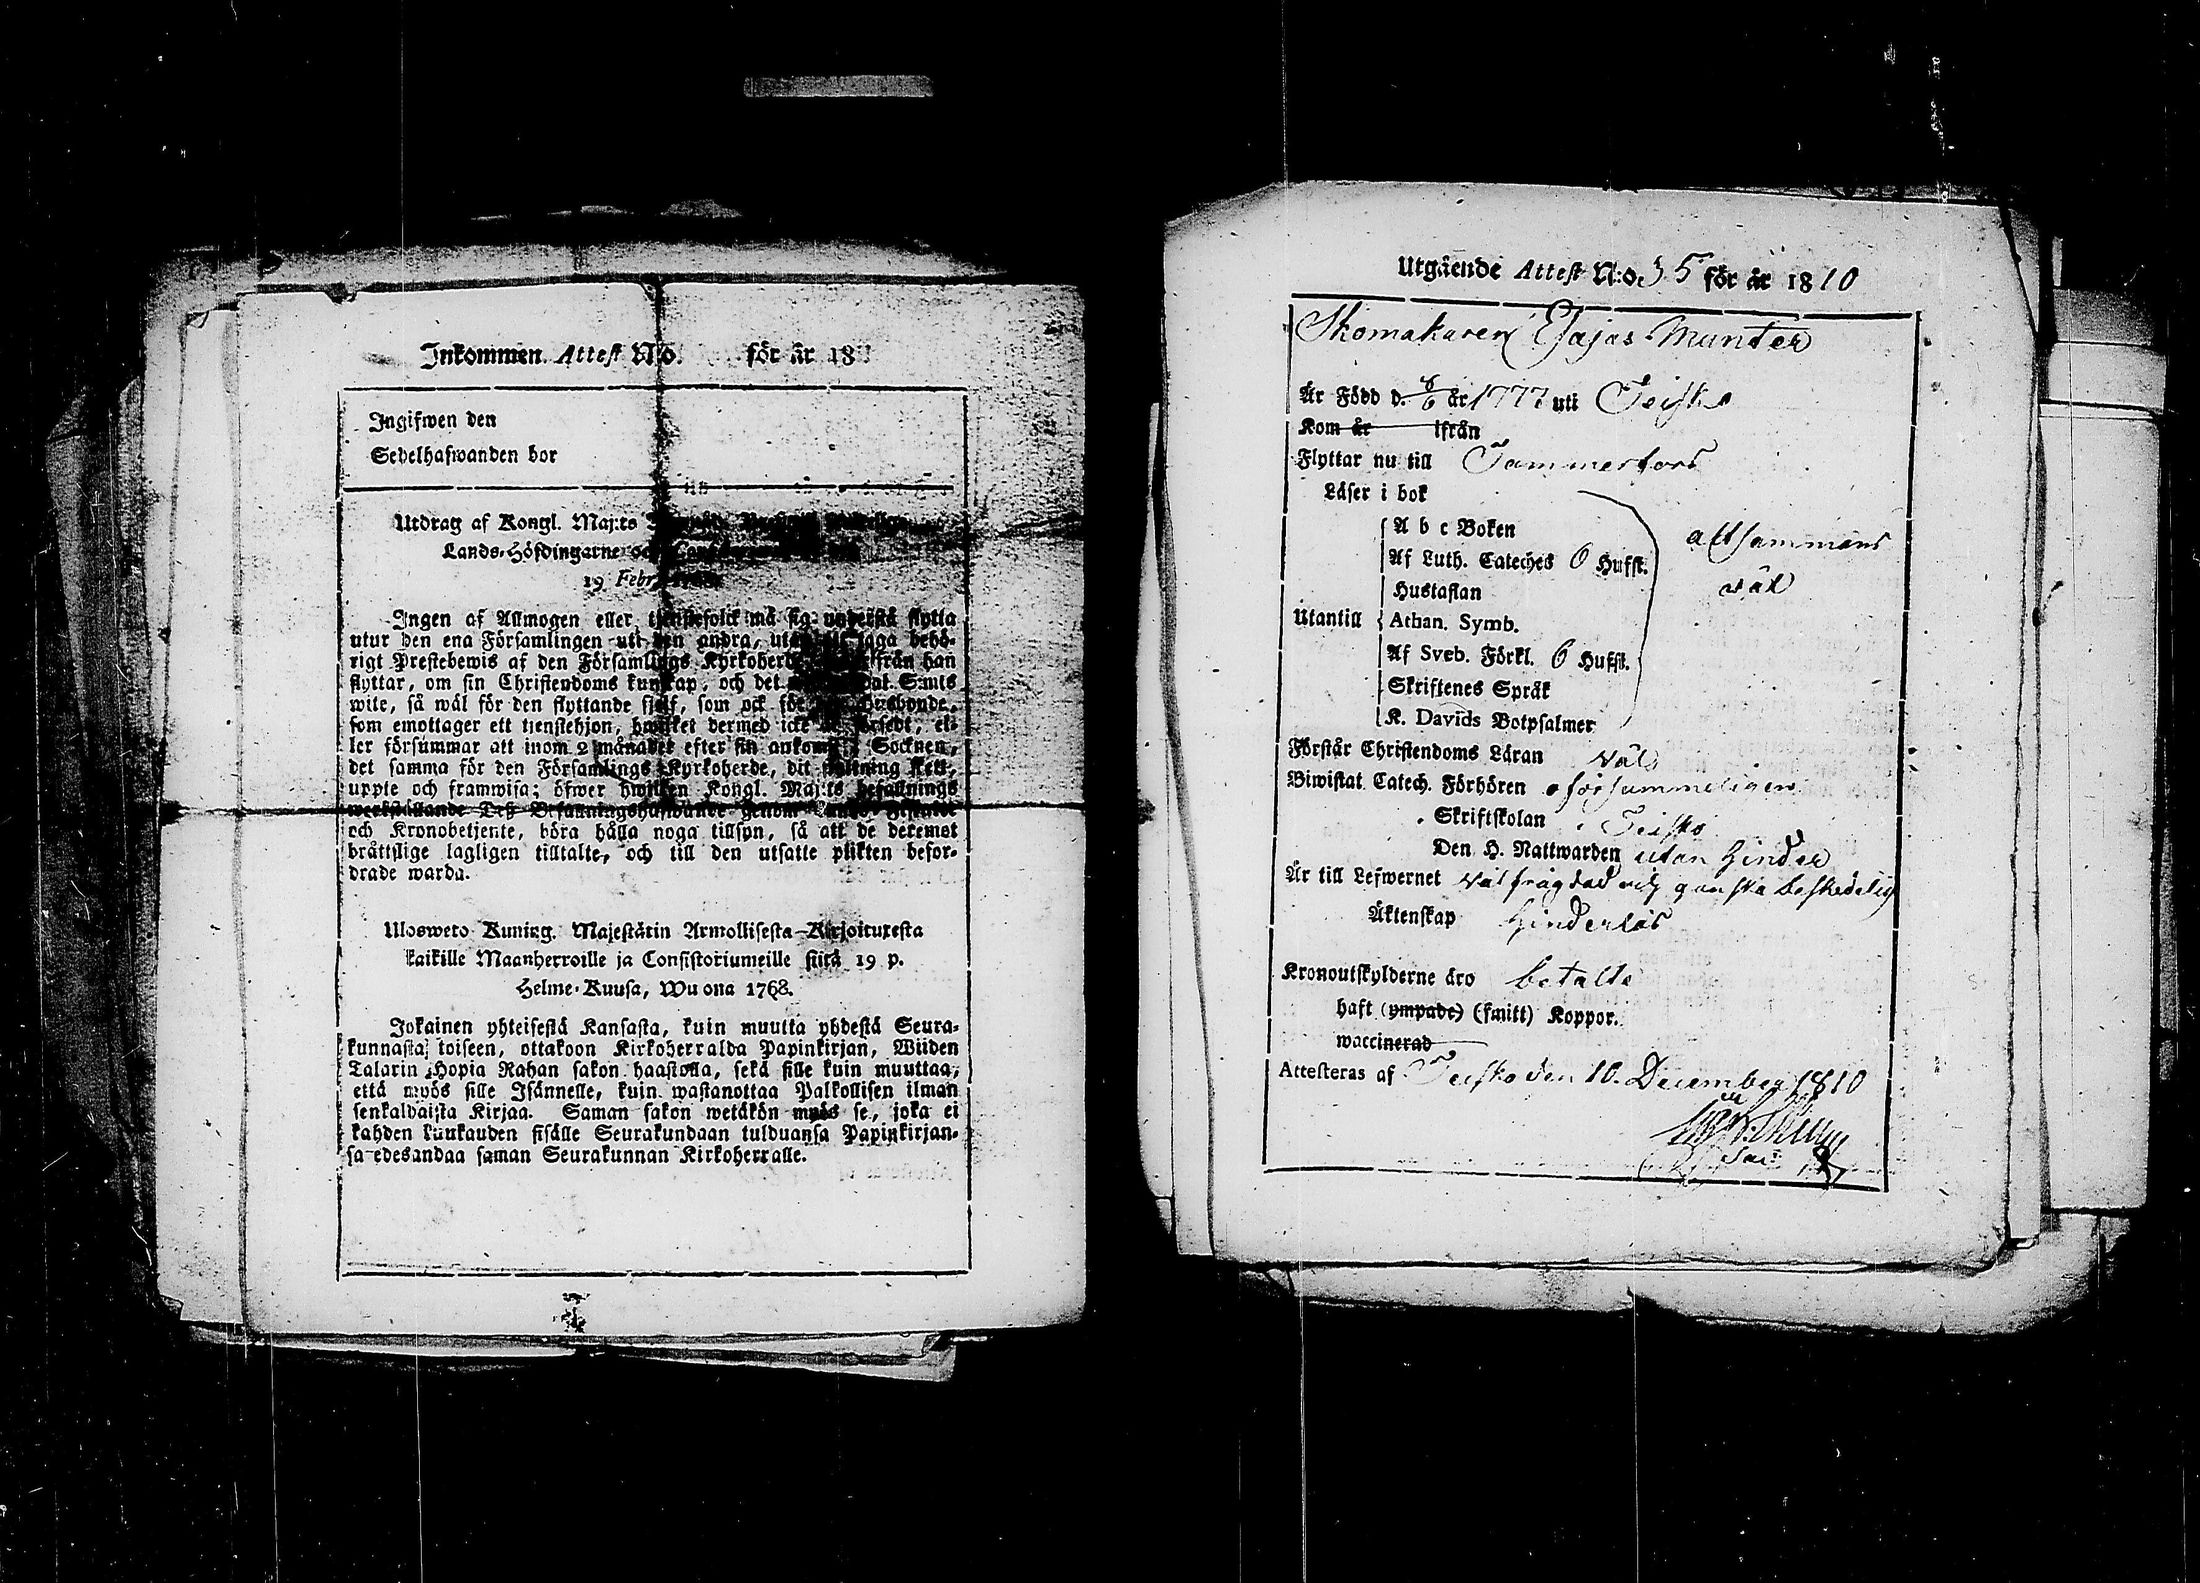 Inkommen Attest N:o. för år 18
Ingifwen den
Sedelhafwanden bor
Utdrag af Kongl. Maj:ts
Lands-Höfdingarne och
19 Febr.
Ingen af Allmogen eller tjenstefolck må sig understå flytta
utur den ena Församlingen uti den andra, utan taga behö-
rigt Prestebewis af den Församlings Kyrkoherde ifrån han
flyttar, om sin Christendoms kunskap, och det S:mts
wite, så wäl för den flyttande sjelf, som ock för Husbonde,
som emottager ett tienstehjon, hwilket dermed icke försedt, el-
ler försummar att inom 2 månader efter sin ankomst Socknen,
det samma för den Församlings Kyrkoherde, dit flyttning skett,
uppte och framwisa; öfwer hwilken Kongl. Maj:ts befallnings
werkställande Dess Befallningshafwande genom Lands Fiskale
och Kronobetjente, böra hålla noga tillsyn, så att de deremot
bråttslige lagligen tilltalte, och till den utsatte plikten befor-
drade warda.
Ulosweto Kuning. Majestätin Armollisesta Kirjoituxesta
kaikille Maanherroille ja Consistoriumeille siitä 19 p.
Helme-Kuusa, Wuona 1768.
Jokainen yhteisestä Kansasta, kuin muutta yhdestä Seura-
kunnasta toiseen, ottakoon Kirkoherralda Papinkirjan, Wiiden
Talarin Hopia Rahan sakon haastolla, sekä sille kuin muuttaa,
että myös sille Isännelle, kuin wastanottaa Palkollisen ilman
senkaldaista Kirjaa. Saman sakon wetäkön myös se, joka ei
kahden Kuukauden sisälle Seurakundaan tulduansa Papinkirjan-
sa edesandaa saman Seurakunnan Kirkoherralle.
Utgående Attest N:o. 35 för år 1810
Skomakaren Esajas Munter
Är Född d. 6/6 år 1777 uti Teisko
Kom år ifrån
Flyttar nu till Tammerfors
Läser i bok
A b c Boken
Af Luth. Cateches 6 Hufst. altsammans
Hustaflan väl
Utantill Athan. Symb.
Af Sveb. Förkl. 6 Hufst.
Skriftenes Språk
K. Davids Botpsalmer
Förstår Christendoms Läran väl
Biwistat Catech. Förhören oförsummeligen
Skriftskolan i Teisko
Den H. Nattwarden utan hinder
Är till Lefwernet välfrägdad och ganska beskedelig
Äktenskap hinderlös
Kronoutskylderne äro betalte
haft (ympade) (smitt) Koppor.
waccinerad
Attesteras af Teisko den 10. December 1810